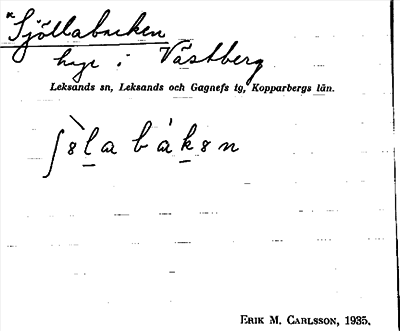 "Sjöllabacken
hage i Västberg
Leksands sn, Leksands och Gagnefs tg, Kopparbergs län.
ERIK M. CARLSSON, 1935.